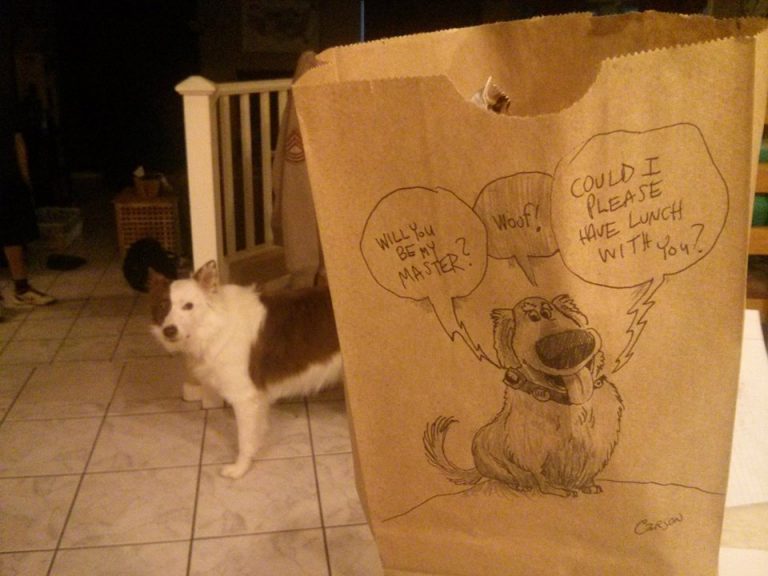 WILL YOU
BE MY
MASTER?
WOOF!
COULD I
PLEASE
HAVE LUNCH
WITH YOU?